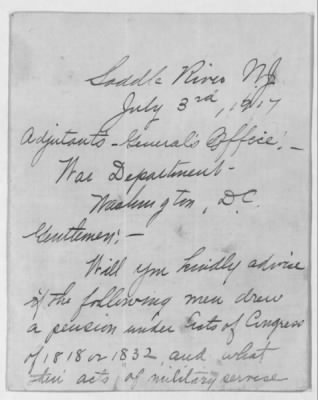 Saddle River NJ
July 3rd, 1917
Adjutants-General's Office:-
War Department-
Washington, D.C.
Gentlemen:-
Will you kindly advise
if the following men drew
a pension under Acts of Congress
of 1818 or 1832, and what
their acts of military service